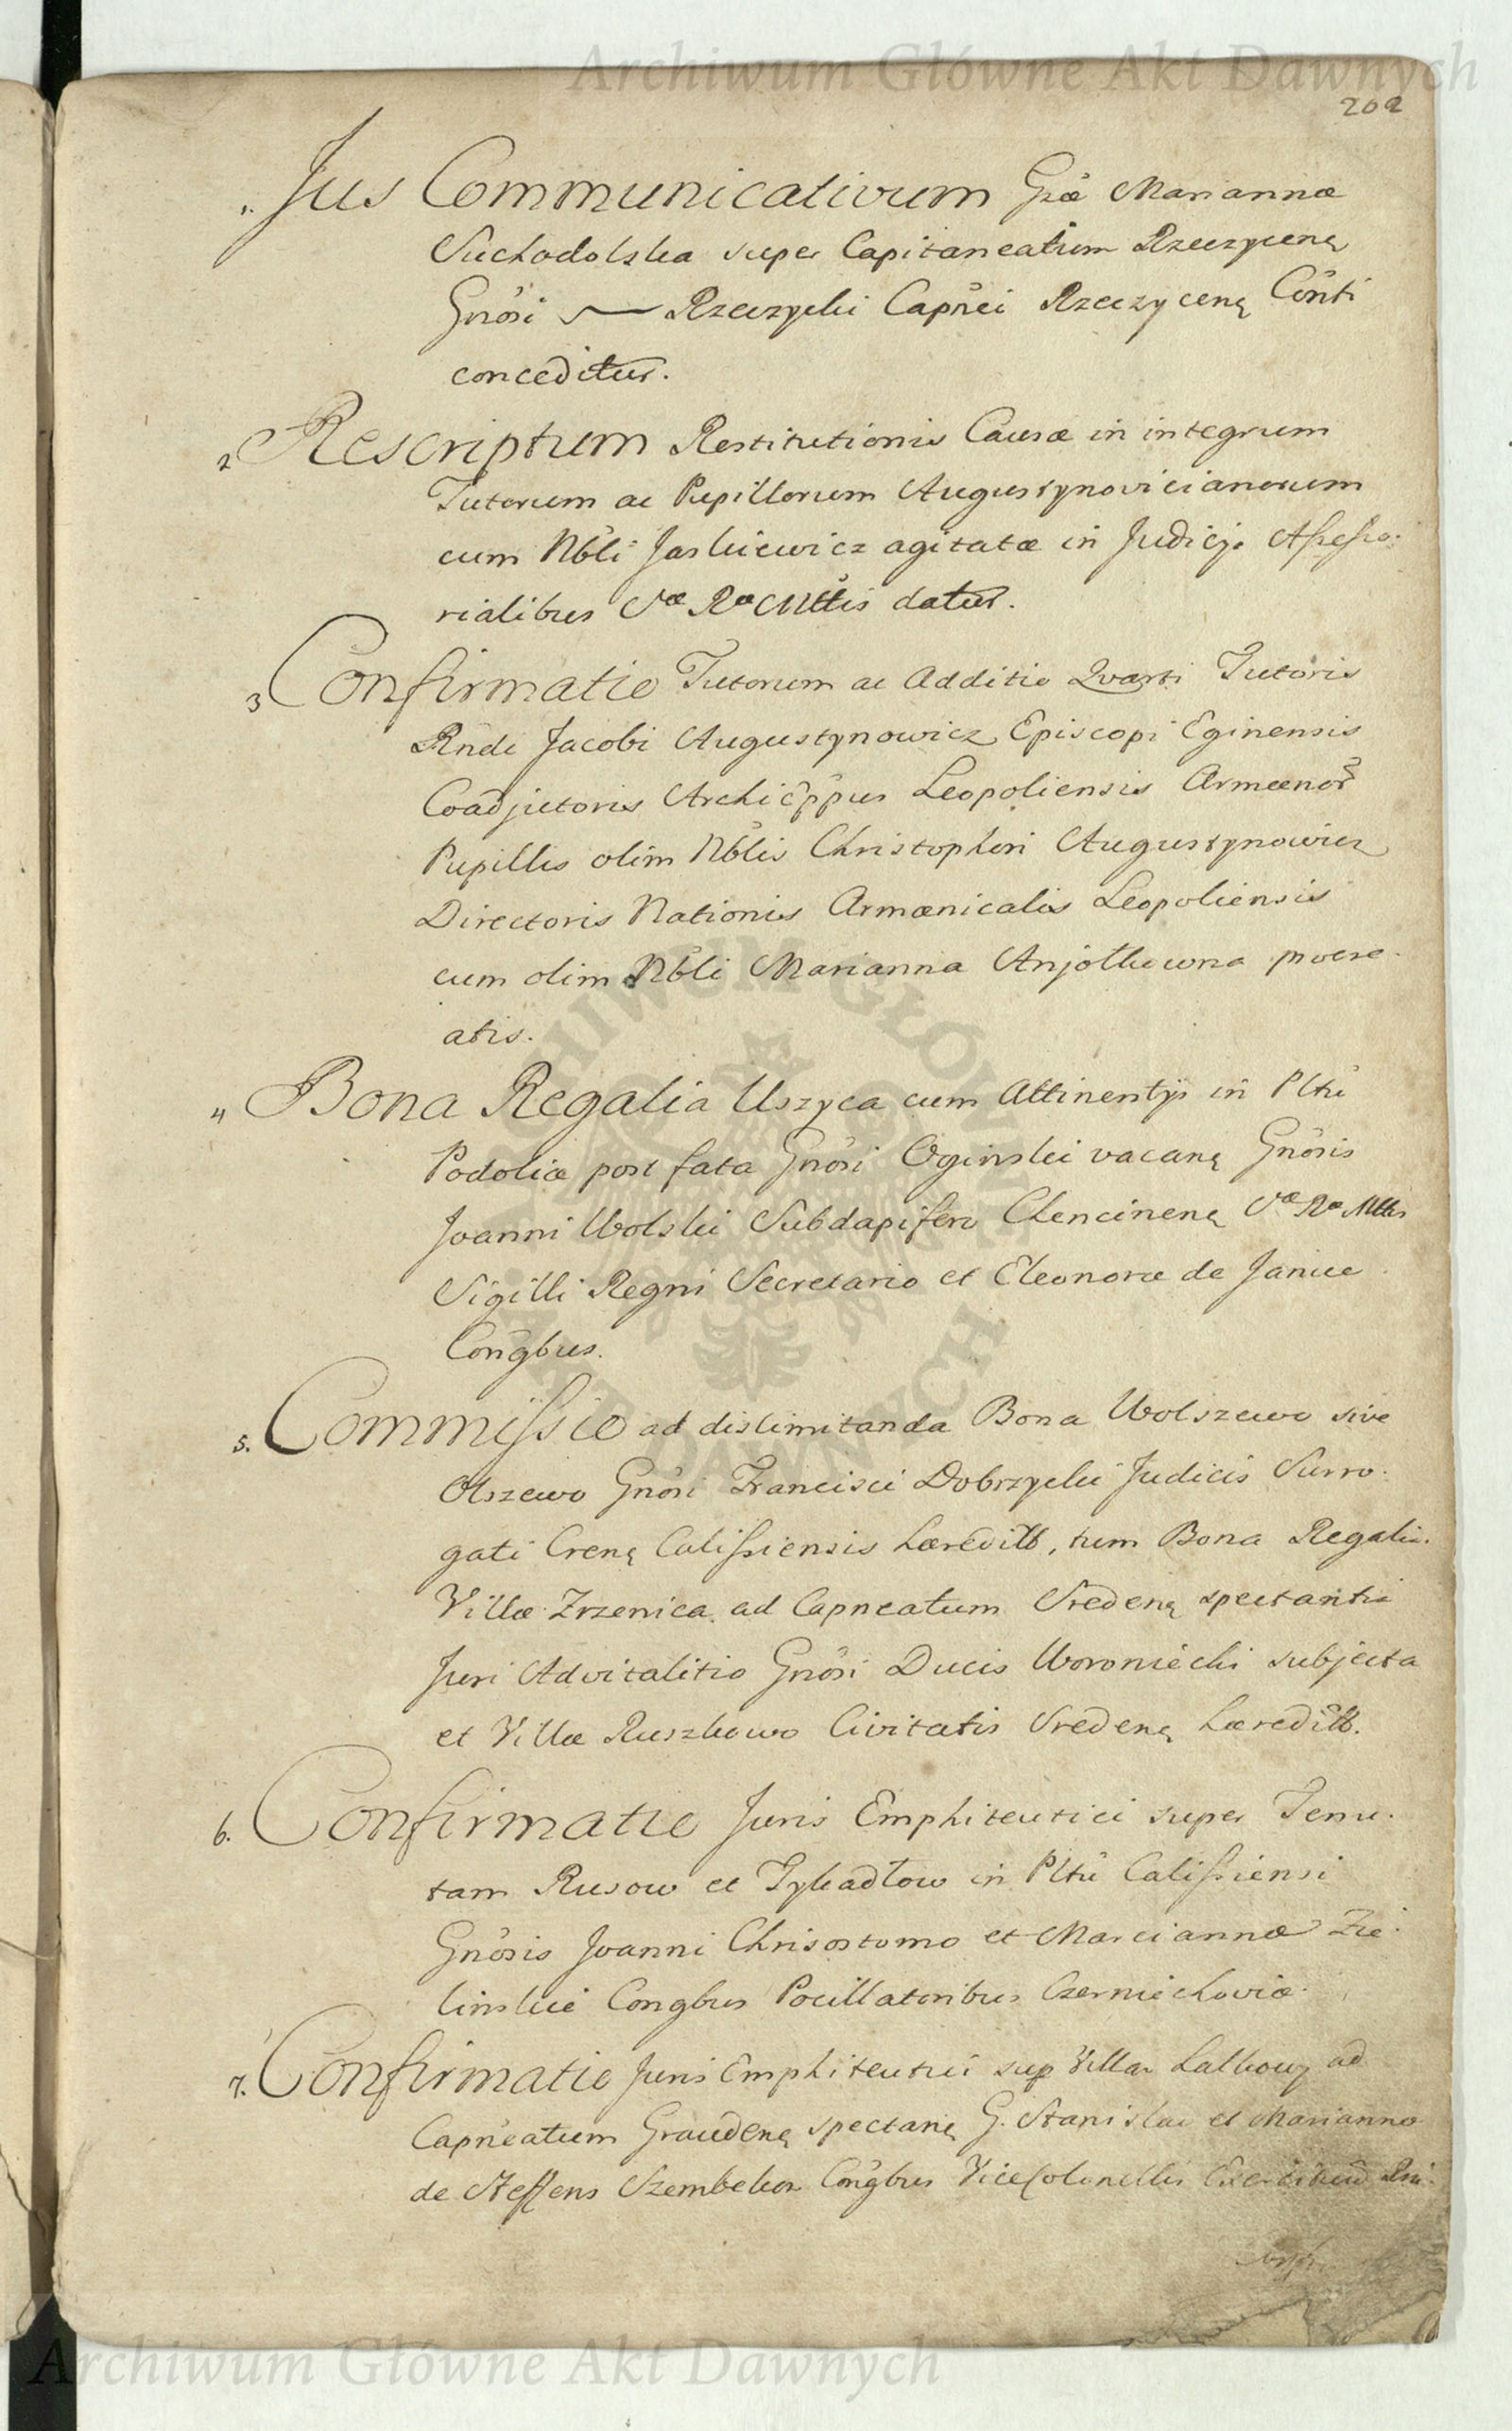 Archiwum Główne Akt Dawnych
202
1. Jus Communicativum Gsæ Mariannæ
Suchodolska super Capitaneatum Rzeczycenę
Gnosi — Rzeczycki Capnei Rzeczycenę Conti
conceditur.
2 Rescriptum Restitutionis Causæ in integrum
Tutorum ac Pupillorum Augustynovicianorum
cum Nbli Jaskiewicz agitatæ in Judicijs Assesso:
rialibus Sæ Ræ Mttis datur.
3 Confirmatio Tutorum ac Additio Quarti Tutoris
Rndi Jacobi Augustynowicz Episcopi Eginensis
Coadjutoris Archieppus Leopoliensis Armenor
Pupillis olim Nblis Christophori Augustynowicz
Directoris Nationis Armænicalis Leopoliensis
cum olim Nbli Marianna Anjołkowna procre-
atis.
4 Bona Regalia Uszyca cum Attinentijs in Pltu
Podoliæ post fata Gnosi Oginski vacanę Gnosis
Joanni Wolski Subdapifero Chencinenę Sæ Ræ Mttis
Sigilli Regni Secretario et Eleonoræ de Janice
Congbus.
5. Commissio ad dislimitanda Bona Wolszewo sive
Olszewo Gnosi Francisci Dobrzycki Judicis Surro-
gati Crenę Calissiensis hæreditt, tum Bona Regalia
Villæ Zrzenica ad Capneatum Sredenę spectantia
Juri Advitalitio Gnosi Ducis Woroniecki subjecta
et Villæ Ruszkowo Civitatis Sredenę hæreditt.
6. Confirmatio Juris Emphiteutici super Tenu-
tam Rusow et Tykadłow in Pltu Calissiensi
Gnosis Joanni Chrisostomo et Marciannæ Zie-
linskie Congbus Pocillatoribus Czerniechoviæ.
7. Confirmatio Juris Emphiteutici sup Villa Lalkowy ad
Capneatum Graudenę spectanę G. Stanislao et Marianna
de Steffens Szembekow Congbus ViceColonellis Exercituu Rni.
Archiwum Główne Akt Dawnych